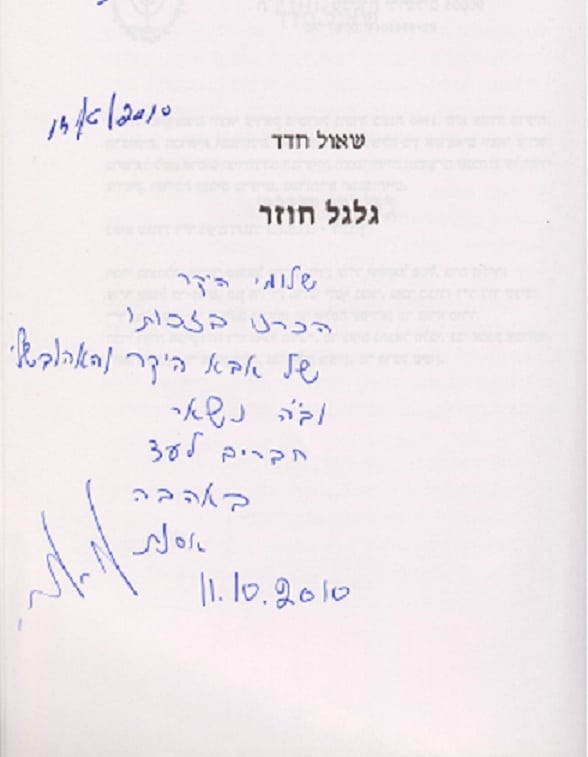 2010
שאול חדד
גלגל חוזר
שלומי היקר
הכרנו בזכותו
של אבא היקר והאהוב שלי
וב"ה נשאר
חברים לעד
באהבה
אסנת
11.10.2010